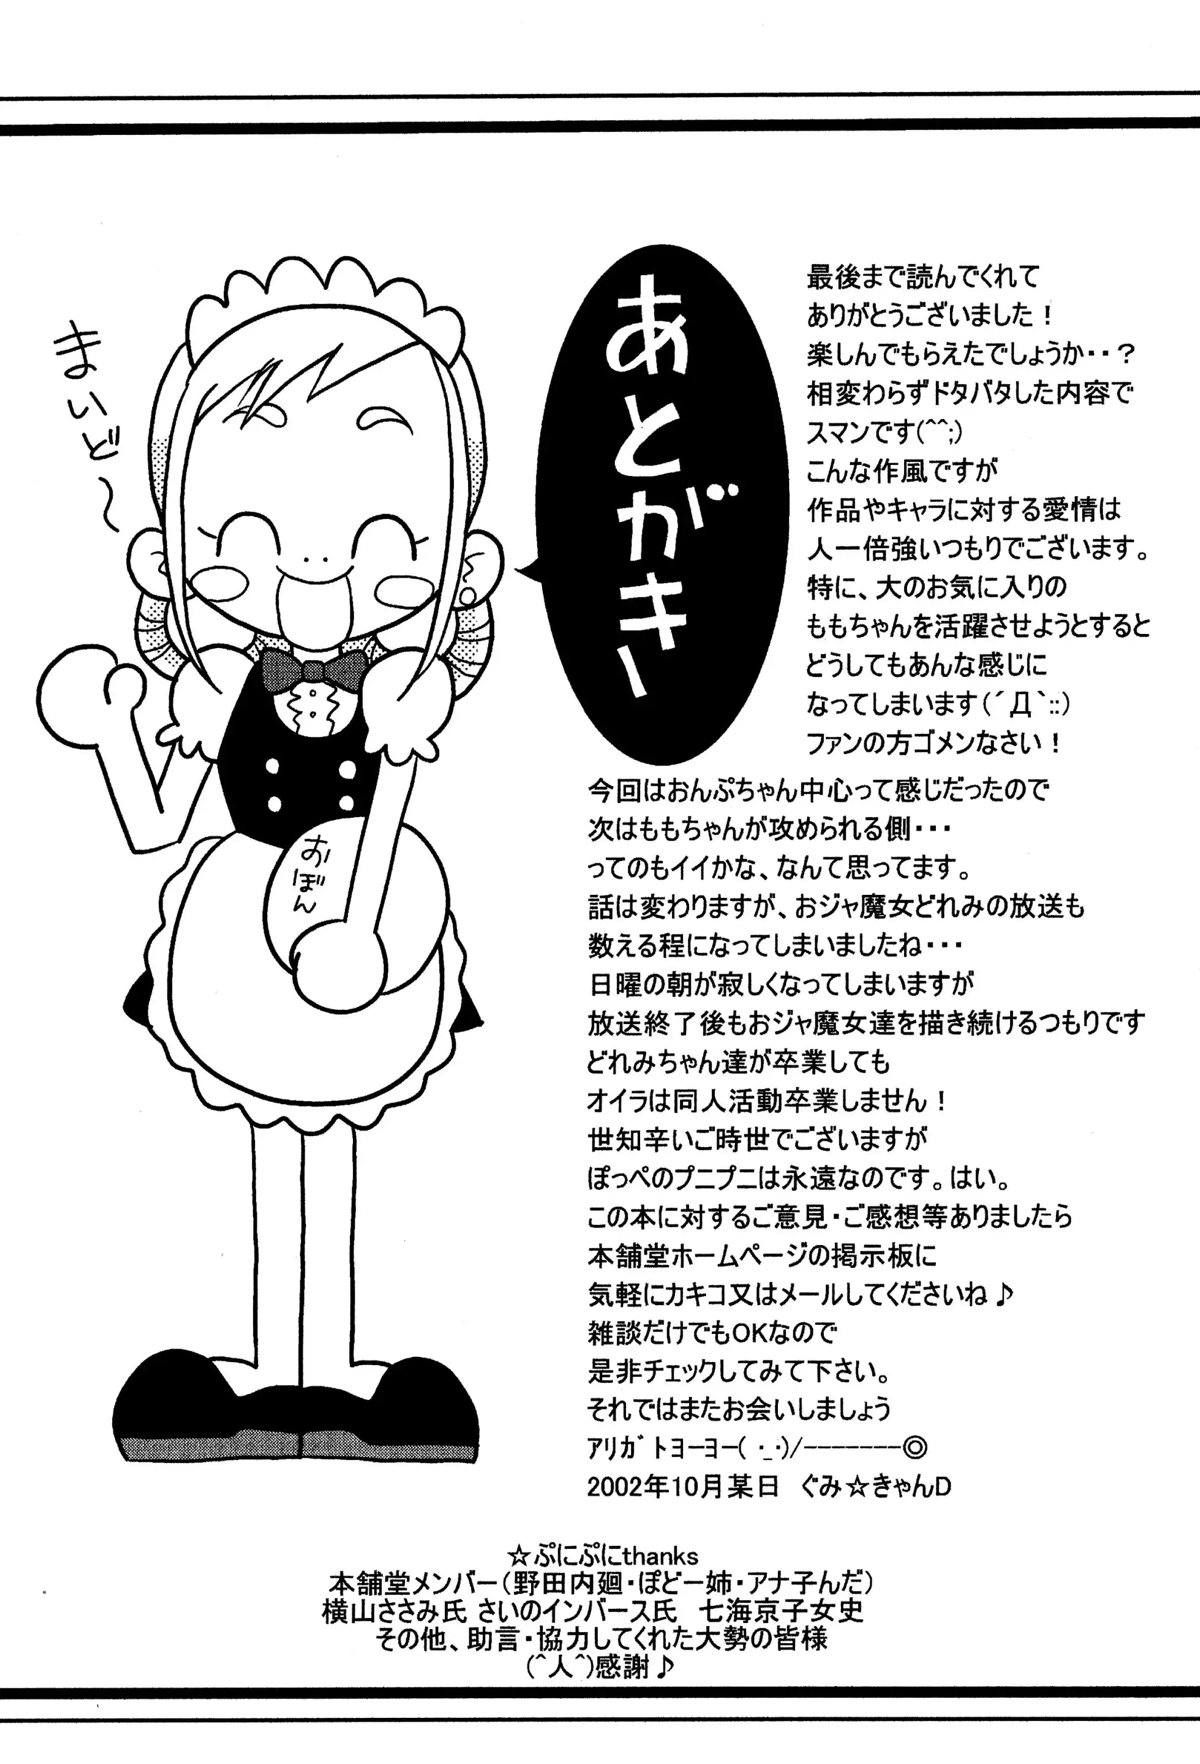 まいど〜
あとがきー
おぼん
最後まで読んでくれて
ありがとうございました！
楽しんでもらえたでしょうか・・？
相変わらずドタバタした内容で
スマンです(^^;)
こんな作風ですが
作品やキャラに対する愛情は
人一倍強いつもりでございます。
特に、大のお気に入りの
ももちゃんを活躍させようとすると
どうしてもあんな感じに
なってしまいます(´Д`::)
ファンの方ゴメンなさい！
今回はおんぷちゃん中心って感じだったので
次はももちゃんが攻められる側・・・
ってのもイイかな、なんて思ってます。
話は変わりますが、おジャ魔女どれみの放送も
数える程になってしまいましたね・・・
日曜の朝が寂しくなってしまいますが
放送終了後もおジャ魔女達を描き続けるつもりです
どれみちゃん達が卒業しても
オイラは同人活動卒業しません！
世知辛いご時世でございますが
ぽっぺのプニプニは永遠なのです。はい。
この本に対するご意見・ご感想等ありましたら
本舗堂ホームページの掲示板に
気軽にカキコ又はメールしてくださいね♪
雑談だけでもOKなので
是非チェックしてみて下さい。
それではまたお会いしましょう
ｱﾘｶﾞﾄﾖｰﾖｰ( ･_･)/-------◎
2002年10月某日　ぐみ☆きゃんD
☆ぷにぷにthanks
本舗堂メンバー（野田内廻・ぽどー姉・アナ子んだ）
横山ささみ氏 さいのインバース氏　七海京子女史
その他、助言・協力してくれた大勢の皆様
(^人^)感謝♪